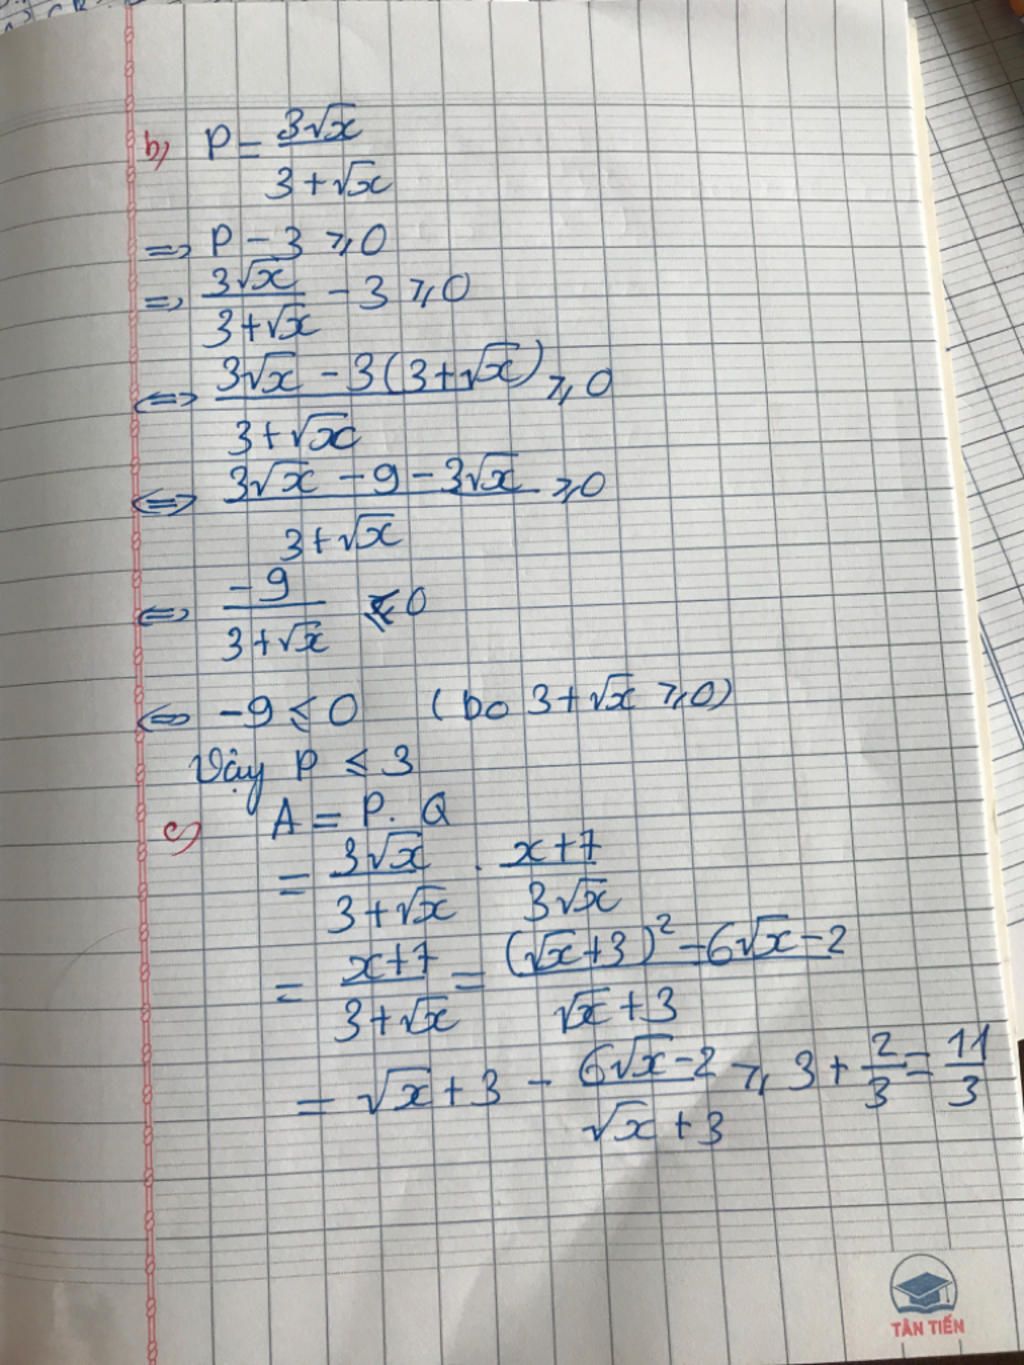 b) P = 3√x / 3+√x
=> P - 3 ⩾ 0
=> 3√x / 3+√x - 3 ⩾ 0
<=> 3√x - 3(3+√x) / 3+√x ⩾ 0
<=> 3√x - 9 - 3√x / 3+√x ⩾ 0
<=> -9 / 3+√x ⩽ 0
<=> -9 ⩽ 0 (do 3+√x ⩾ 0)
Vậy P ⩽ 3
c) A = P. Q
= 3√x / 3+√x . x+7 / 3√x
= x+7 / 3+√x = (√x+3)² - 6√x - 2 / √x+3
= √x+3 - 6√x-2 / √x+3 ⩾ 3 + 2/3 = 11/3
TÂN TIẾN